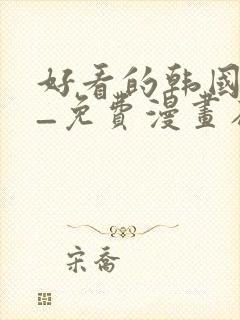 好看的韩國
_免費漫畫
宋喬